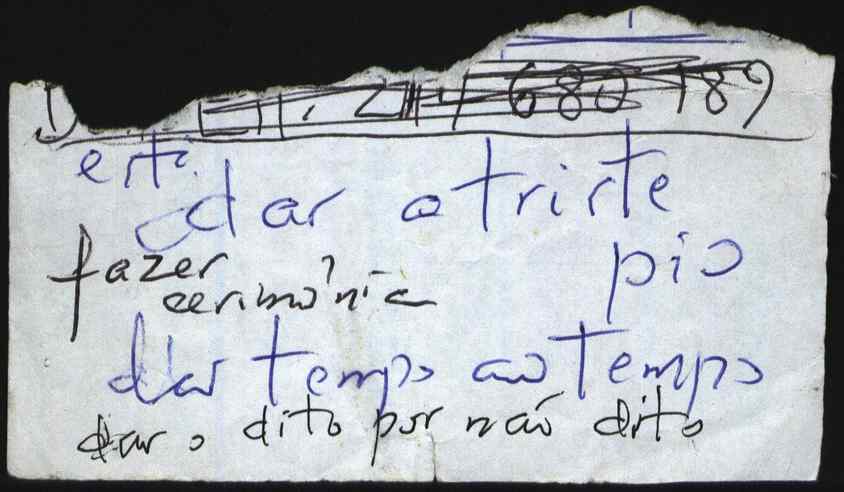 680 789
dar o triste
pio
fazer
cerimónia
dar tempo ao tempo
dar o dito por não dito